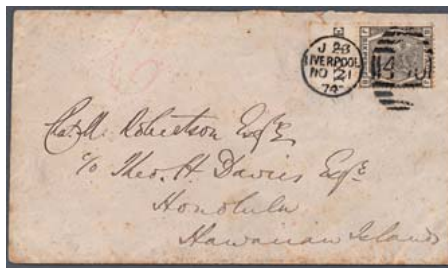 J 28
LIVERPOOL
NO 21
74
466
Chas. M. Robertson Esqre
c/o Theo. H. Davies Esqre
Honolulu
Hawaiian Islands